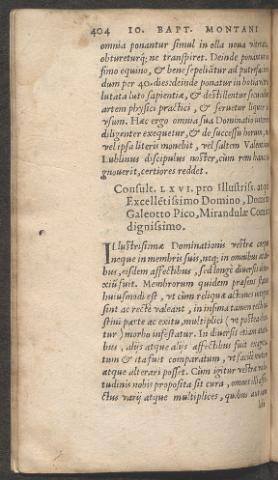 404 IO. BAPT. MONTANI
omnia ponantur simul in olla noua vitreata
obtureturq; ne transpiret. Deinde ponantur
fimo equino, & bene sepeliãtur ad putrefa
dum per 40. dies: deinde ponatur in botia
lutata luto sapientiæ, & destillentur secundũ
artem physici practici, & seruetur liquor
vsum. Hæc ergo omnia sua Dominatio
diligenter exequetur, & de successu horum,
vel ipsa literis monebit, vel saltem Valentin
Lublinus discipulus noster, cùm rem hanc
gnouerit, certiores reddet.
Consult. LXVI. pro Illustriss. atq;
Excellẽtissimo Domino, Domin
Galeotto Pico, Mirandulæ Comi
dignissimo.
Illustrissimæ Dominationis vestræ corpus
neque in membris suis, neq; in omnibus
bus, eisdem affectibus, sed longè diuersis
xiũ fuit. Membrorum quidem præsens
huiusmodi est, vt cùm reliquæ actiones
sint ac rectè valeant, in infima tamen
stini parte ac exitu, multiplici (ve postea
tur) morbo infestatur. In diuersis etiam
bus, alijs atque alijs affectibus fuit
tum & ita fuit comparatum, vt facilè
atque alterari posset. Cùm igitur vestræ
tudinis nobis proposita sit cura, omnes
ctus varij atque multiplices, quibus